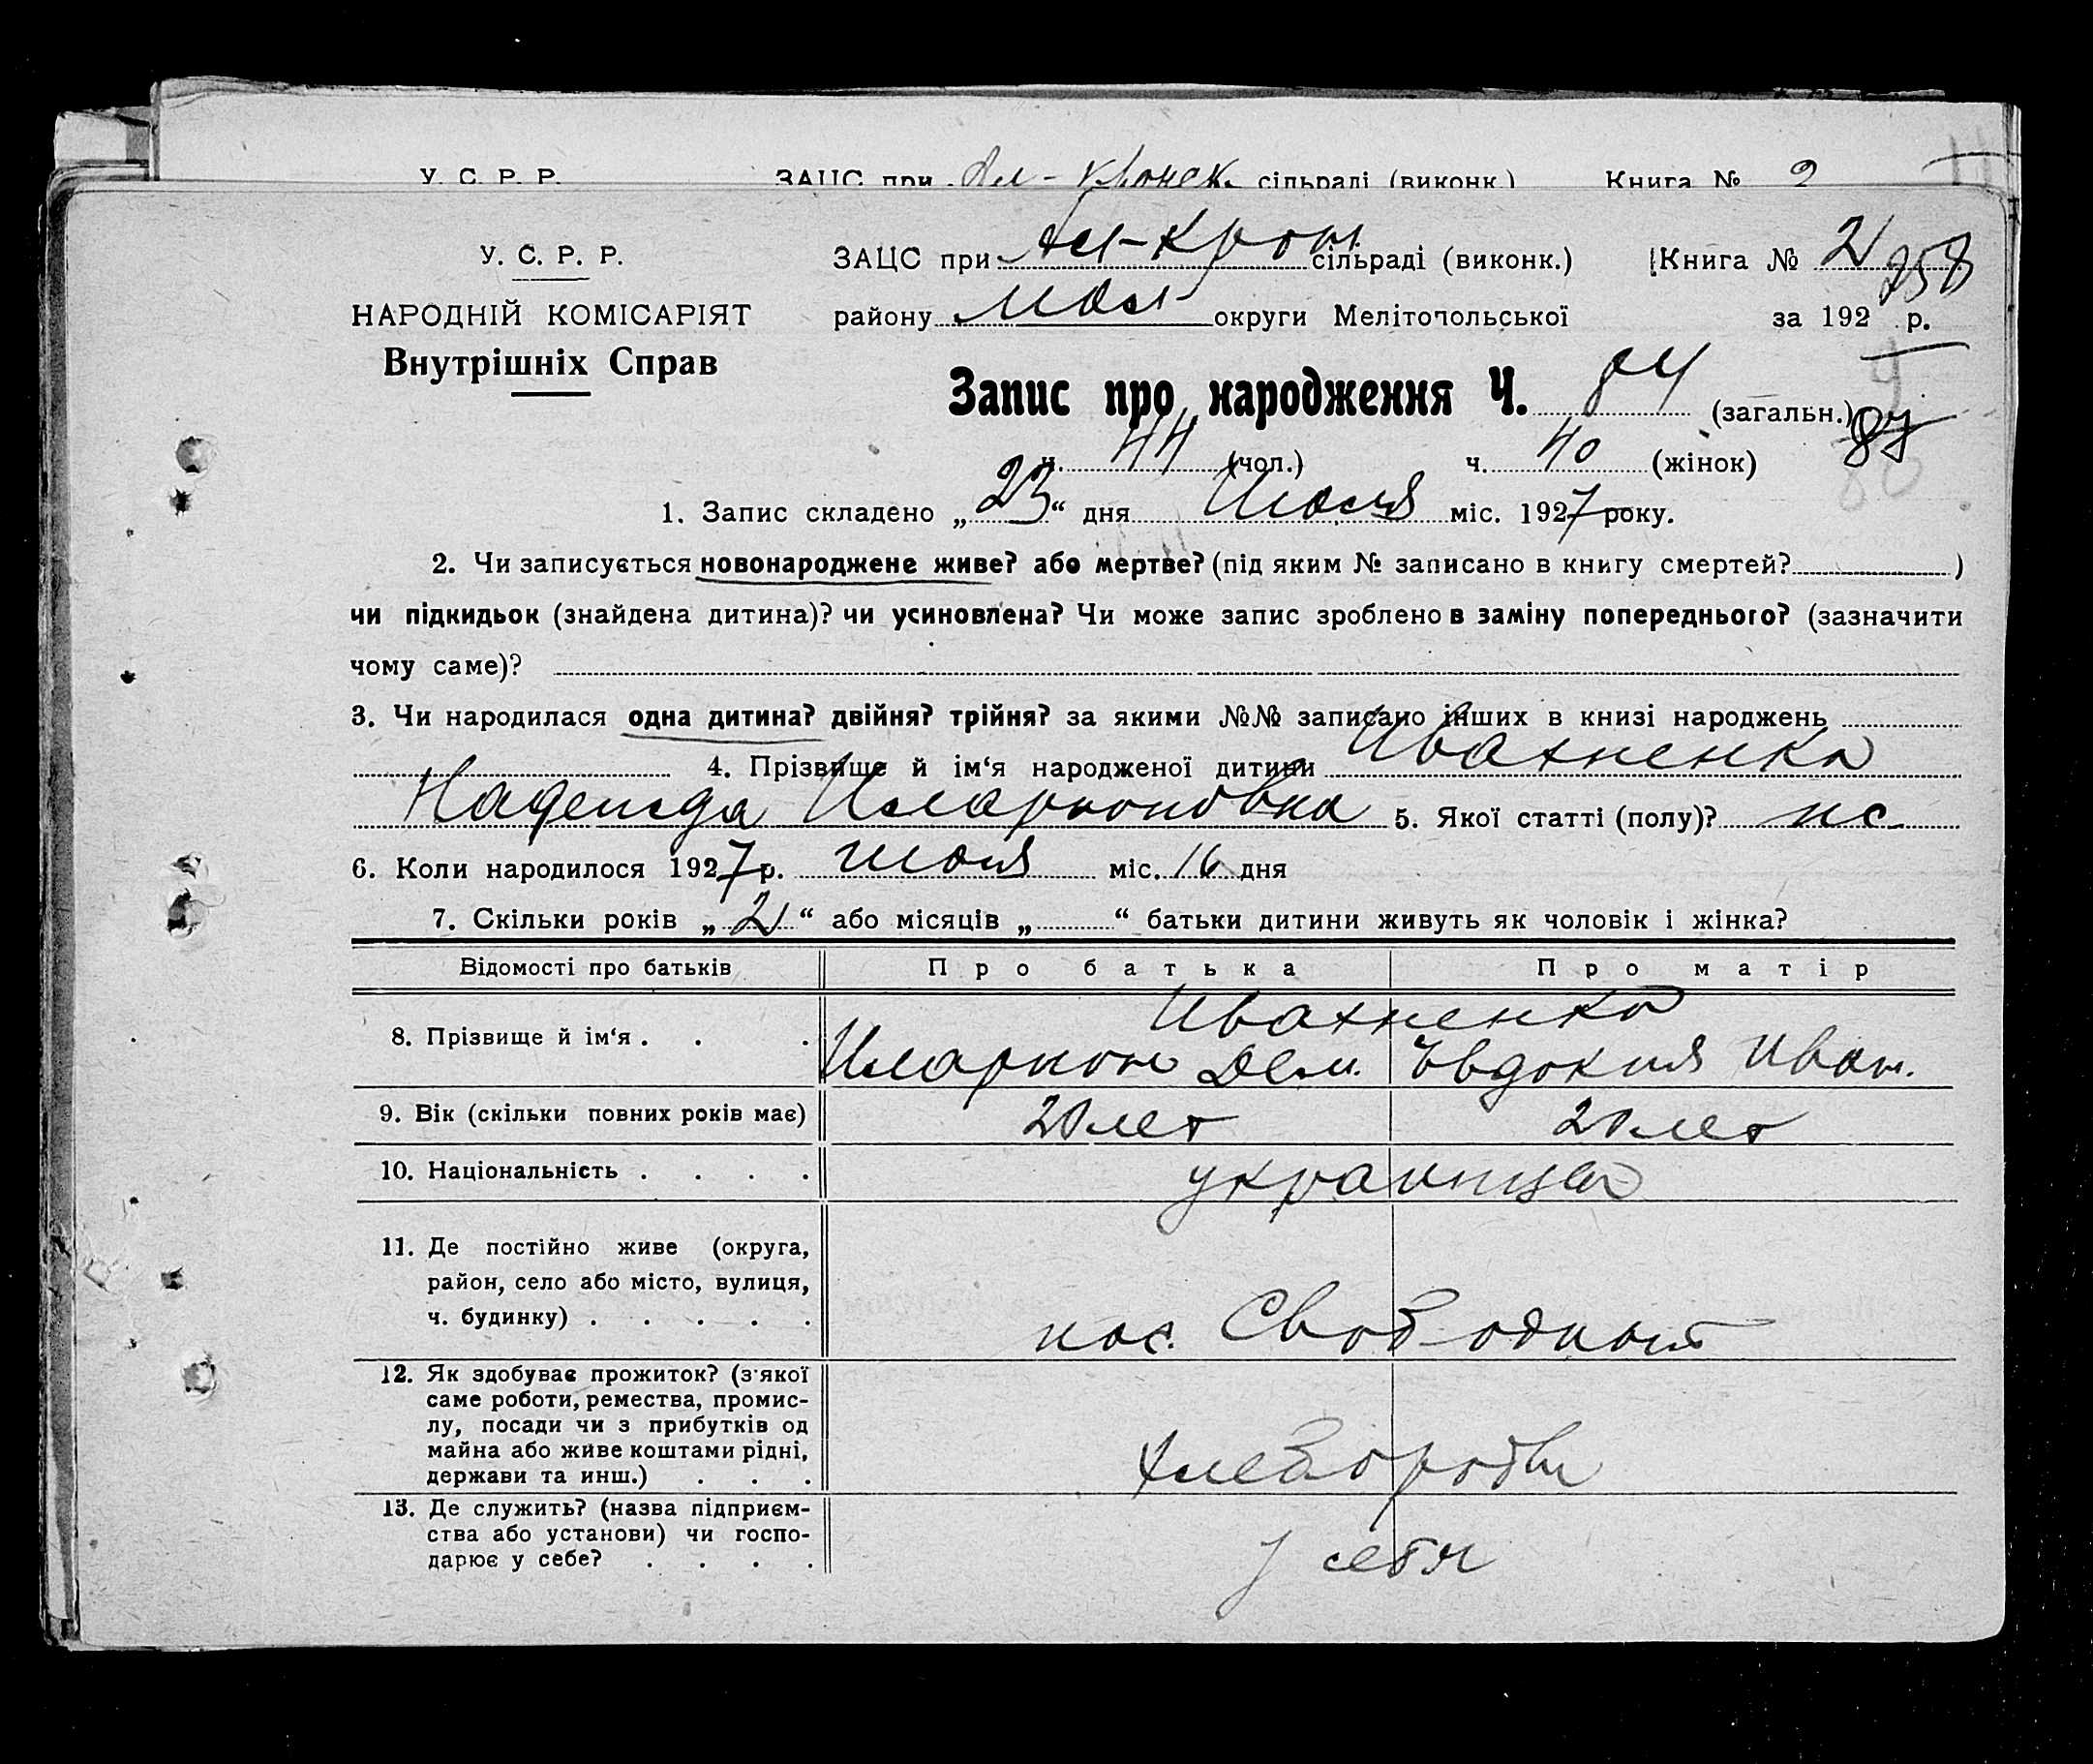 У. С. Р. Р. ЗАЦС при Ал-Кронск. сільраді (виконк.) Книга № 2
У. С. Р. Р. ЗАЦС при Ал-Крон сільраді (виконк.) Книга № 2 258
НАРОДНІЙ КОМІСАРІЯТ району Мол округи Мелітопольської за 192 р.
Внутрішніх Справ
Запис про народження Ч. 84 (загальн.) 87
ч. 44 (чол.) ч. 40 (жінок)
1. Запис складено „23“ дня Июля міс. 1927 року.
2. Чи записується новонароджене живе? або мертве? (під яким № записано в книгу смертей? )
чи підкидьок (знайдена дитина)? чи усиновлена? Чи може запис зроблено в заміну попереднього? (зазначити
чому саме)?
3. Чи народилася одна дитина? двійня? трійня? за якими №№ записано інших в книзі народжень
4. Прізвище й ім‘я народженої дитини Ивахненко
Надежда Иларионовна 5. Якої статті (полу)? жс.
6. Коли народилося 1927 р. июля міс. 16 дня
7. Скільки років „2“ або місяців „ “ батьки дитини живуть як чоловік і жінка?
Відомості про батьків Про батька Про матір
Ивахненко
8. Прізвище й ім‘я . . . Иларион Дем. Евдокия Иван.
9. Вік (скільки повних років має) 20 лет 20 лет
10. Національність . . . . украинцы
11. Де постійно живе (округа,
район, село або місто, вулиця,
ч. будинку) . . . . . пос. Свободный
12. Як здобуває прожиток? (з якої
саме роботи, ремества, промис-
лу, посади чи з прибутків од
майна або живе коштами рідні, хлебороб
держави та инш.) . . .
13. Де служить? (назва підприєм-
ства або установи) чи госпо- у себя
дарює у себе? . . . .